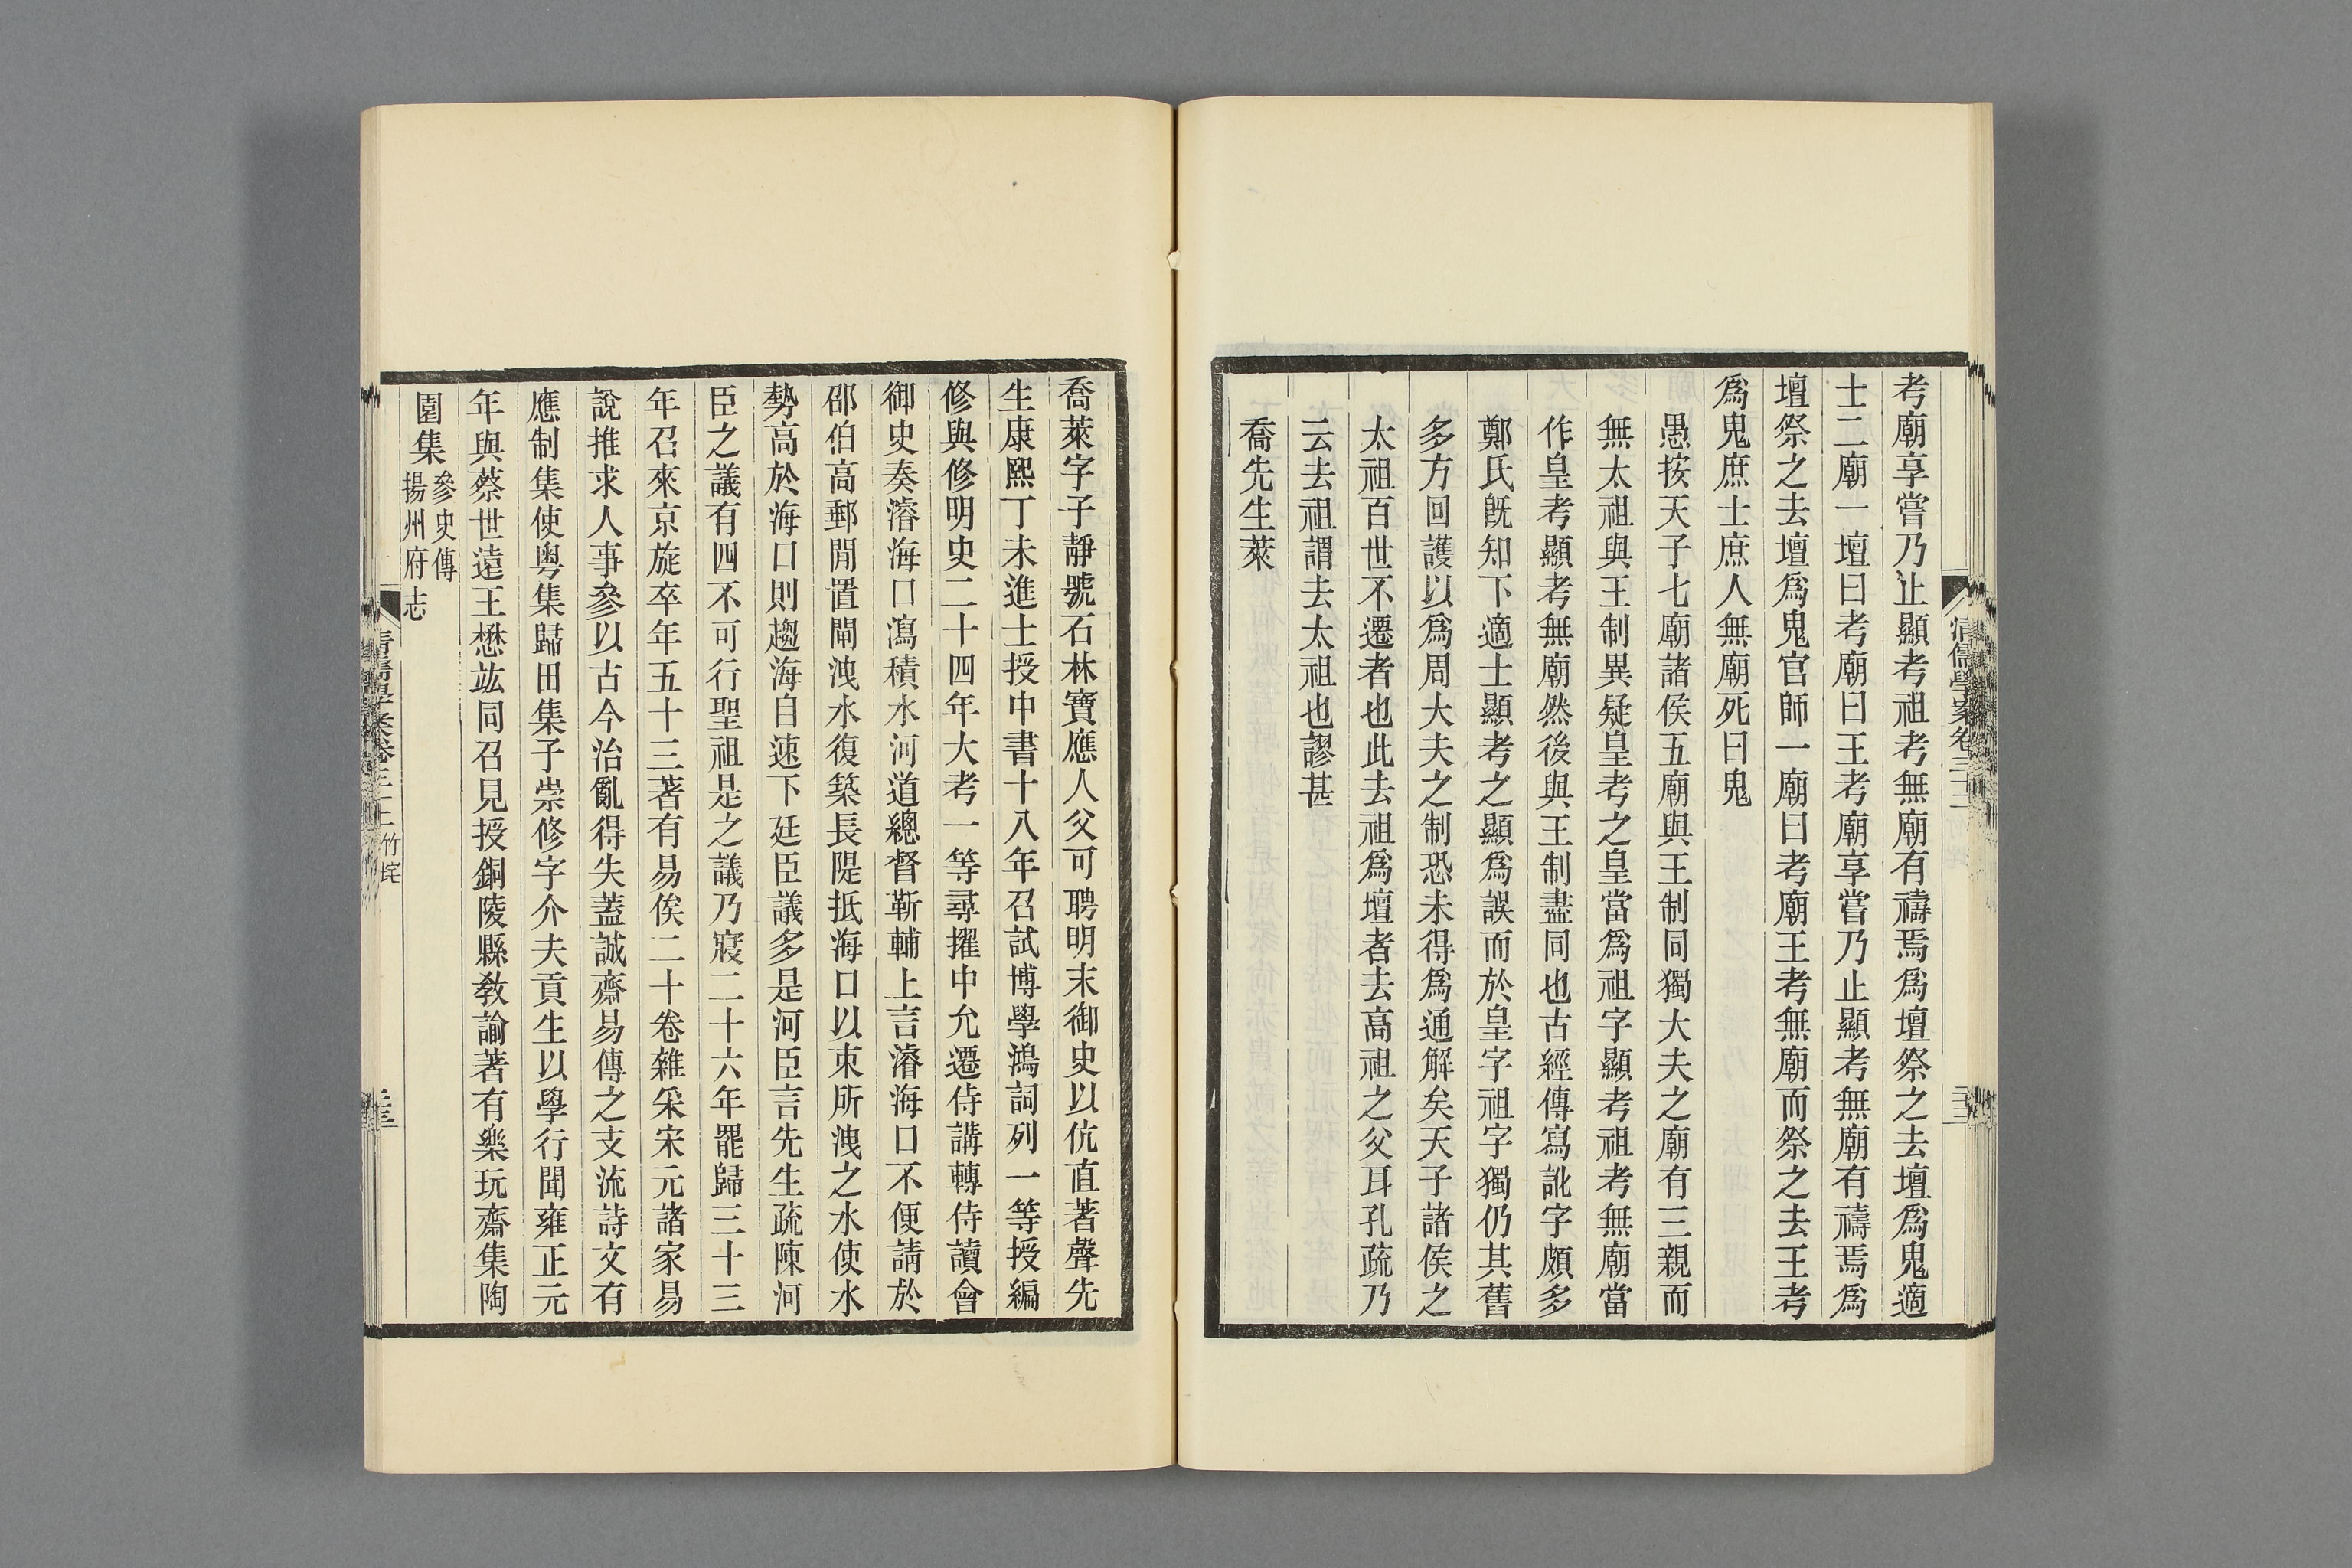 考廟享嘗乃止顯考祖考無廟有禱焉爲壇祭之去壇爲鬼適
士二廟一壇曰考廟曰王考廟享嘗乃止顯考無廟有禱焉爲
壇祭之去壇爲鬼官師一廟曰考廟王考無廟而祭之去王考
爲鬼庶士庶人無廟死曰鬼
愚按天子七廟諸侯五廟與王制同獨大夫之廟有三親而
無太祖與王制異疑皇考之皇當爲祖字顯考祖考無廟當
作皇考顯考無廟然後與王制盡同也古經傳寫訛字頗多
鄭氏旣知下適士顯考之顯爲誤而於皇字祖字獨仍其舊
多方回護以爲周大夫之制恐未得爲通解矣天子諸侯之
太祖百世不遷者也此去祖爲壇者去高祖之父耳孔疏乃
云去祖謂去太祖也謬甚
喬先生萊
喬萊字子靜號石林寶應人父可聘明末御史以伉直著聲先
生康熙丁未進士授中書十八年召試博學鴻詞列一等授編
修與修明史二十四年大考一等尋擢中允遷侍講轉侍讀會
御史奏濬海口瀉積水河道總督靳輔上言濬海口不便請於
邵伯高郵閒置閘洩水復築長隄抵海口以束所洩之水使水
勢高於海口則趨海自速下廷臣議多是河臣言先生疏陳河
臣之議有四不可行聖祖是之議乃寢二十六年罷歸三十三
年召來京旋卒年五十三著有易俟二十卷雜采宋元諸家易
說推求人事參以古今治亂得失蓋誠齋易傳之支流詩文有
應制集使粵集歸田集子崇修字介夫貢生以學行聞雍正元
年與蔡世遠王懋竑同召見授銅陵縣敎諭著有樂玩齋集陶
園集 參史傳
揚州府志
清儒學案卷三十二 竹垞